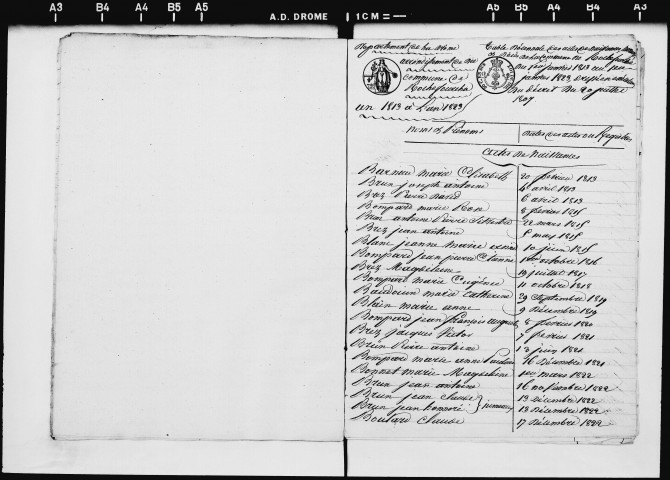 A3 B4 A4 B5 A5 A.D. DROME 1CM = A5 B5 A4 B4 A3
Département de la Drome
arrondissement de Die
commune de
Rochefourcha
an 1813 à l'an 1823
Table Décennale des actes de naissances
de la commune de Rochefourcha
du 1er janvier 1813 au 1er
janvier 1823
du Décret du 20 juillet
1807
noms & Prénoms Dates des actes au Registre
Actes de Naissances
marie Elisabeth 20 février 1813
Brun joseph antoine 4 avril 1813
Brez Pierre David 6 avril 1813
Bompard marie Rose 8 février 1815
Brun antoine Pierre 22 mars 1815
Brez jean antoine 5 may 1815
Blanc jeanne marie 10 juin 1815
Bompard jean pierre Etienne 1er octobre 1816
Brez Magdeleine 19 juillet 1817
Bompard marie Eugénie 11 octobre 1818
Baudouin marie Catherine 29 septembre 1819
marie anne 9 décembre 1819
Bompard jean françois auguste 8 février 1820
Brez jacques Victor 7 février 1821
Brun Pierre antoine 13 juin 1821
Bompard marie anne 16 décembre 1821
Bonnet marie Magdeleine 1er mars 1822
Brun jean antoine 16 novembre 1822
Brun jean Claude 13 décembre 1822
Brun jean honoré } jumeaux 13 décembre 1822
Boutard Claude 17 décembre 1822